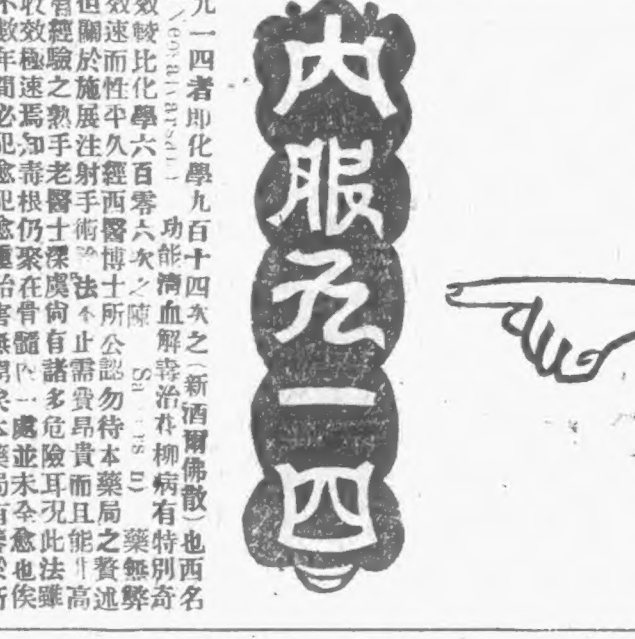 內服九一四
九一四者即化學九百十四次之(新酒爾佛散)也西名
功能清血解毒治花柳病有特別奇
效較比化學六百零六次之 藥無弊
效速而性平久經西醫博士所公認勿待本藥局之贅述
但關於施展注射手術 法不止需費昂貴而且能 高
經驗之熟手老醫士深虞尚有諸多危險耳况此法雖
收效極速焉知毒根仍聚在骨髓內一處並未全愈也俟
不數年間必犯愈犯愈重 害無 矣本藥局有